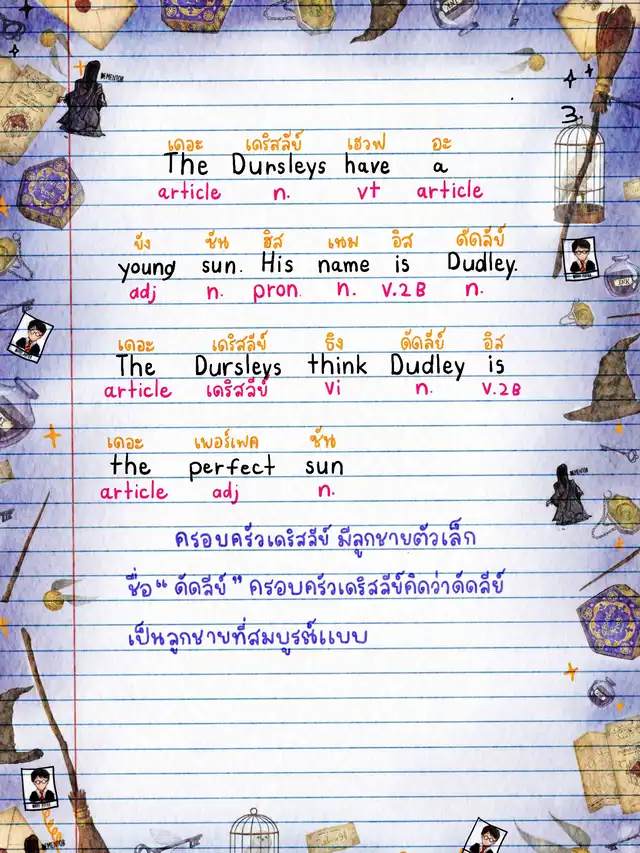 DEMENTOR
3.
เดอะ เดริสลีย์ เฮวฟ อะ
The Dursleys have a
article n. vt article
ยัง ซัน ฮิส เนม อิส ดัดลีย์
young sun. His name is Dudley.
adj n. pron. n. v.2B n.
เดอะ เดริสลีย์ ธิง ดัดลีย์ อิส
The Dursleys think Dudley is
article เดริสลีย์ vi n. v.2B
เดอะ เพอร์เฟค ซัน
the perfect sun
article adj n.
DEMENTOR
ครอบครัวเดริสลีย์ มีลูกชายตัวเล็ก
ชื่อ“ ดัดลีย์ ” ครอบครัวเดริสลีย์คิดว่าดัดลีย์
เป็นลูกชายที่สมบูรณ์แบบ